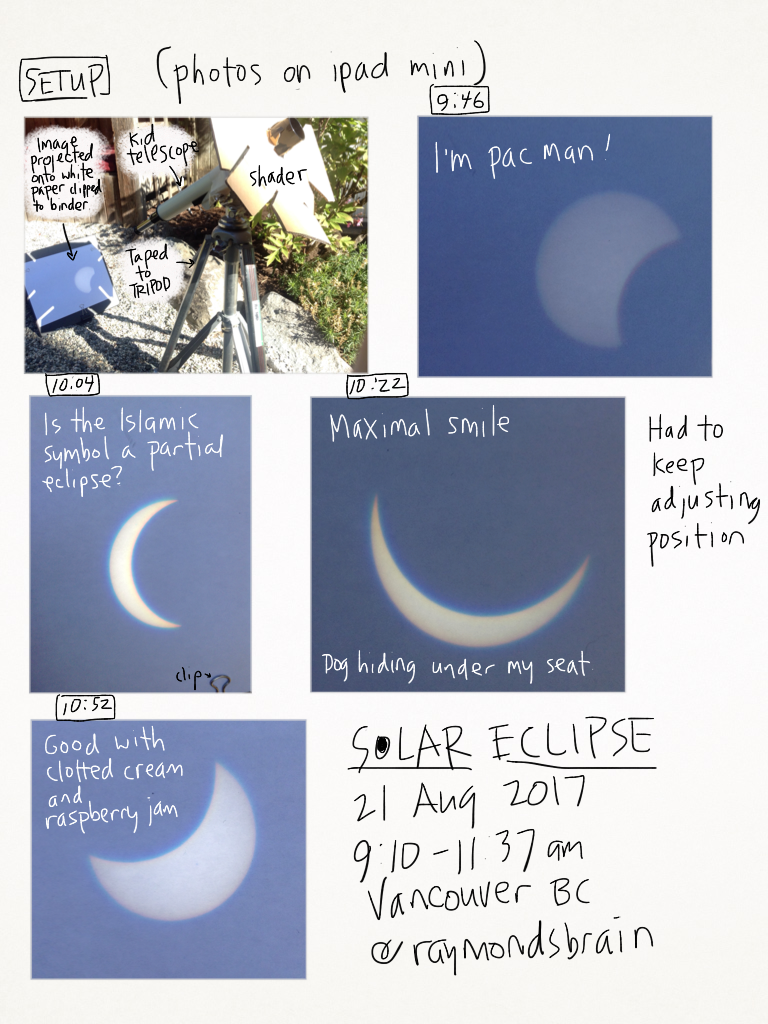 SETUP (photos on ipad mini)
Image
projected
onto white
paper clipped
to binder
Kid
telescope
shader
Taped
to
TRIPOD
9:46
I'm pac man!
10:04
Is the Islamic
symbol a partial
eclipse?
clip
10:22
Maximal smile
Dog hiding under my seat
Had to
keep
adjusting
position
10:52
Good with
clotted cream
and
raspberry jam
SOLAR ECLIPSE
21 Aug 2017
9:10-11:37am
Vancouver BC
@raymondsbrain